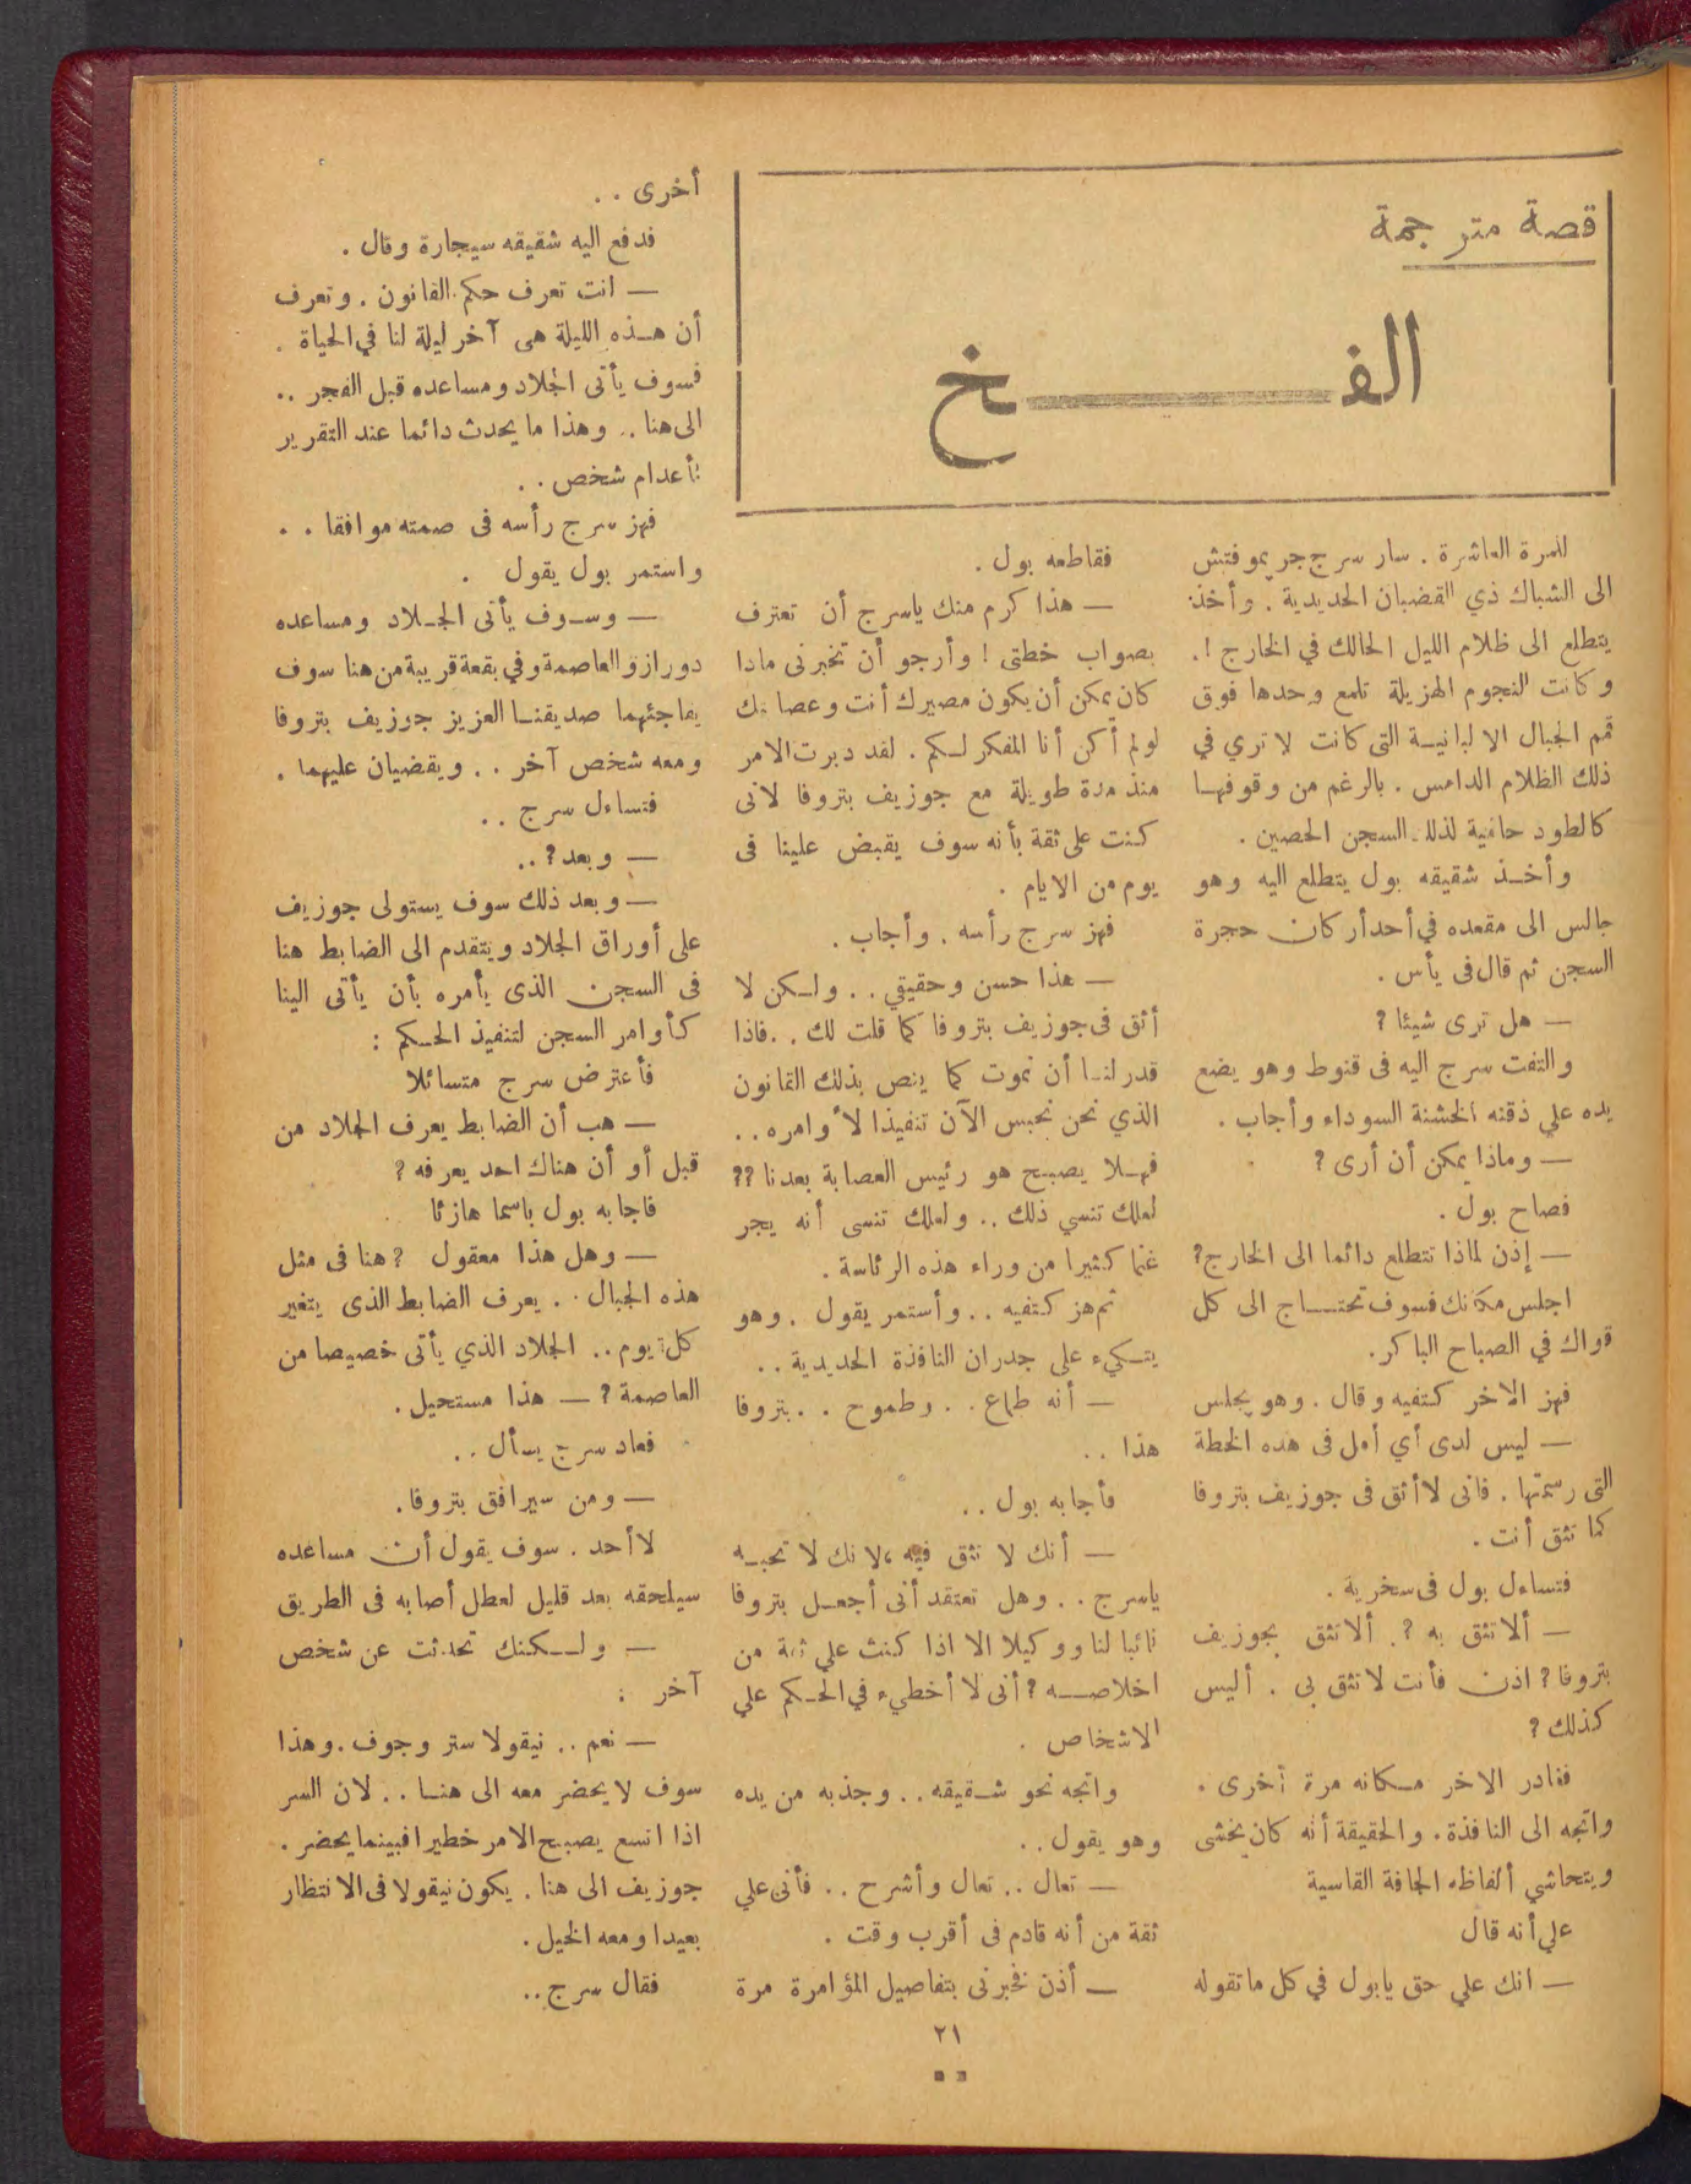 قصة مترجمة
الفـــــخ
للمرة العاشرة . سار سرج جريموفتش
الى الشباك ذي القضبان الحديدية . وأخذ
يتطلع الى ظلام الليل الحالك في الخارج !.
وكانت النجوم الهزيلة تلمع وحدها فوق
قمم الجبال الالبانيـة التى كانت لا تري في
ذلك الظلام الدامس . بالرغم من وقوفهـا
كالطود حامية لذلك السجن الحصين .
وأخـذ شقيقه بول يتطلع اليه وهو
جالس الى مقعده في أحد أركان حجرة
السجن ثم قال فى يأس .
— هل ترى شيئا ?
والتفت سرج اليه فى قنوط وهو يضع
يده علي ذقنه الخشنة السوداء وأجاب .
— وماذا يمكن أن أرى ?
فصاح بول .
— إذن لماذا تتطلع دائما الى الخارج?
اجلس مكانك فسوف تحتـــاج الى كل
قواك في الصباح الباكر.
فهز الاخر كتفيه وقال . وهو يجلس
— ليس لدى أي أمل فى هده الخطة
التى رسمتها . فانى لا أثق فى جوزيف بتروفا
كما تثق أنت .
فتساءل بول فى سخرية .
— ألا تثق به ?. ألا تثق بجوزيف
بتروفا ? اذن فأنت لا تثق بى . أليس
كذلك ?
فغادر الاخر مـكانه مرة أخرى .
واتجه الى النافذة. والحقيقة أنه كان يخشى
ويتحاشي ألفاظه الجافة القاسية
علي أنه قال
— انك علي حق يابول في كل ما تقوله
فقاطعه بول .
— هذا كرم منك ياسرج أن تعترف
بصواب خطتى ! وأرجو أن تخبرنى مادا
كان يمكن أن يكون مصيرك أنت وعصابتك
لو لم أكن أنا المفكر لـكم . لقد دبرت الامر
منذ مدة طويلة مع جوزيف بتروفا لانى
كنت على ثقة بأنه سوف يقبض علينا فى
يوم من الايام .
فهز سرج رأسه . وأجاب .
— هذا حسن وحقيقي . . ولـكن لا
أثق فى جوزيف بتروفا كما قلت لك . .فاذا
قدر لنـا أن نموت كما ينص بذلك القانون
الذي نحن نحبس الآن تنفيذا لأوامره . .
فهـلا يصبـح هو رئيس العصابة بعدنا ??
لعلك تنسي ذلك .. ولعلك تنسى أنه يجر
غنما كثيرا من وراء هذه الرئاسة .
ثم هز كتفيه . . وأستمر يقول . وهو
يتـكيء على جدران النافذة الحديدية . .
— أنه طماع . . وطموح . . بتروفا
هذا . .
فأجابه بول . .
— أنك لا تثق فيه ، لانك لا تحبـه
ياسرج . . وهل تعتقد أنى أجعـل بتروفا
نائبا لنا ووكيلا الا اذا كنت علي ثقة من
اخلاصـــه ? أنى لا أخطيء في الحـكم علي
الاشخاص .
واتجه نحو شـقيقه . . وجذبه من يده
وهو يقول . .
— تعال .. تعال وأشرح . . فأنى علي
ثقة من أنه قادم فى أقرب وقت .
— أذن فخبرنى بتفاصيل المؤامرة مرة
أخرى . .
فدفع اليه شقيقه سيجارة وقال .
— انت تعرف حكم القانون . وتعرف
أن هـذه الليلة هى آخر ليلة لنا في الحياة .
فسوف يأتى الجلاد ومساعده قبل الفجر . .
الى هنا .. وهذا ما يحدث دائما عند التقرير
بأعدام شخص . .
فهز سرج رأسه فى صمته موافقا . .
واستمر بول يقول .
— وسـوف يأتى الجـلاد ومساعده
دورازو العاصمة وفي بقعة قريبة من هنا سوف
يفاجئهما صديقنـا العزيز جوزيف بتروفا
ومعه شخص آخر . . ويقضيان عليهما .
فتساءل سرج . .
— وبعد ? ..
— وبعد ذلك سوف يستولى جوزيف
على أوراق الجلاد ويتقدم الى الضابط هنا
فى السجن الذى يأمره بأن يأتى الينا
كأوامر السجن لتنفيذ الحـكم :
فأعترض سرج متسائلا
— هب أن الضابط يعرف الجلاد من
قبل أو أن هناك احد يعرفه ?
فاجابه بول باسما هازئا
— وهل هذا معقول ? هنا فى مثل
هذه الجبال . . يعرف الضابط الذى يتغير
كل يوم .. الجلاد الذي يأتى خصيصا من
العاصمة ? — هذا مستحيل .
فعاد سرج يسأل . .
— ومن سيرافق بتروفا.
لا أحد . سوف يقول أن مساعده
سيلحقه بعد قليل لعطل أصابه فى الطريق
— ولـــكنك تحدثت عن شخص
آخر :
— نعم .. نيقولا ستروجوف . وهذا
سوف لا يحضر معه الى هنـا . . لان السر
اذا اتسع يصبـح الامر خطيرا فبينما يحضر .
جوزيف الى هنا . يكون نيقولا فى الانتظار
بعيدا ومعه الخيل .
فقال سرج ..
٢١